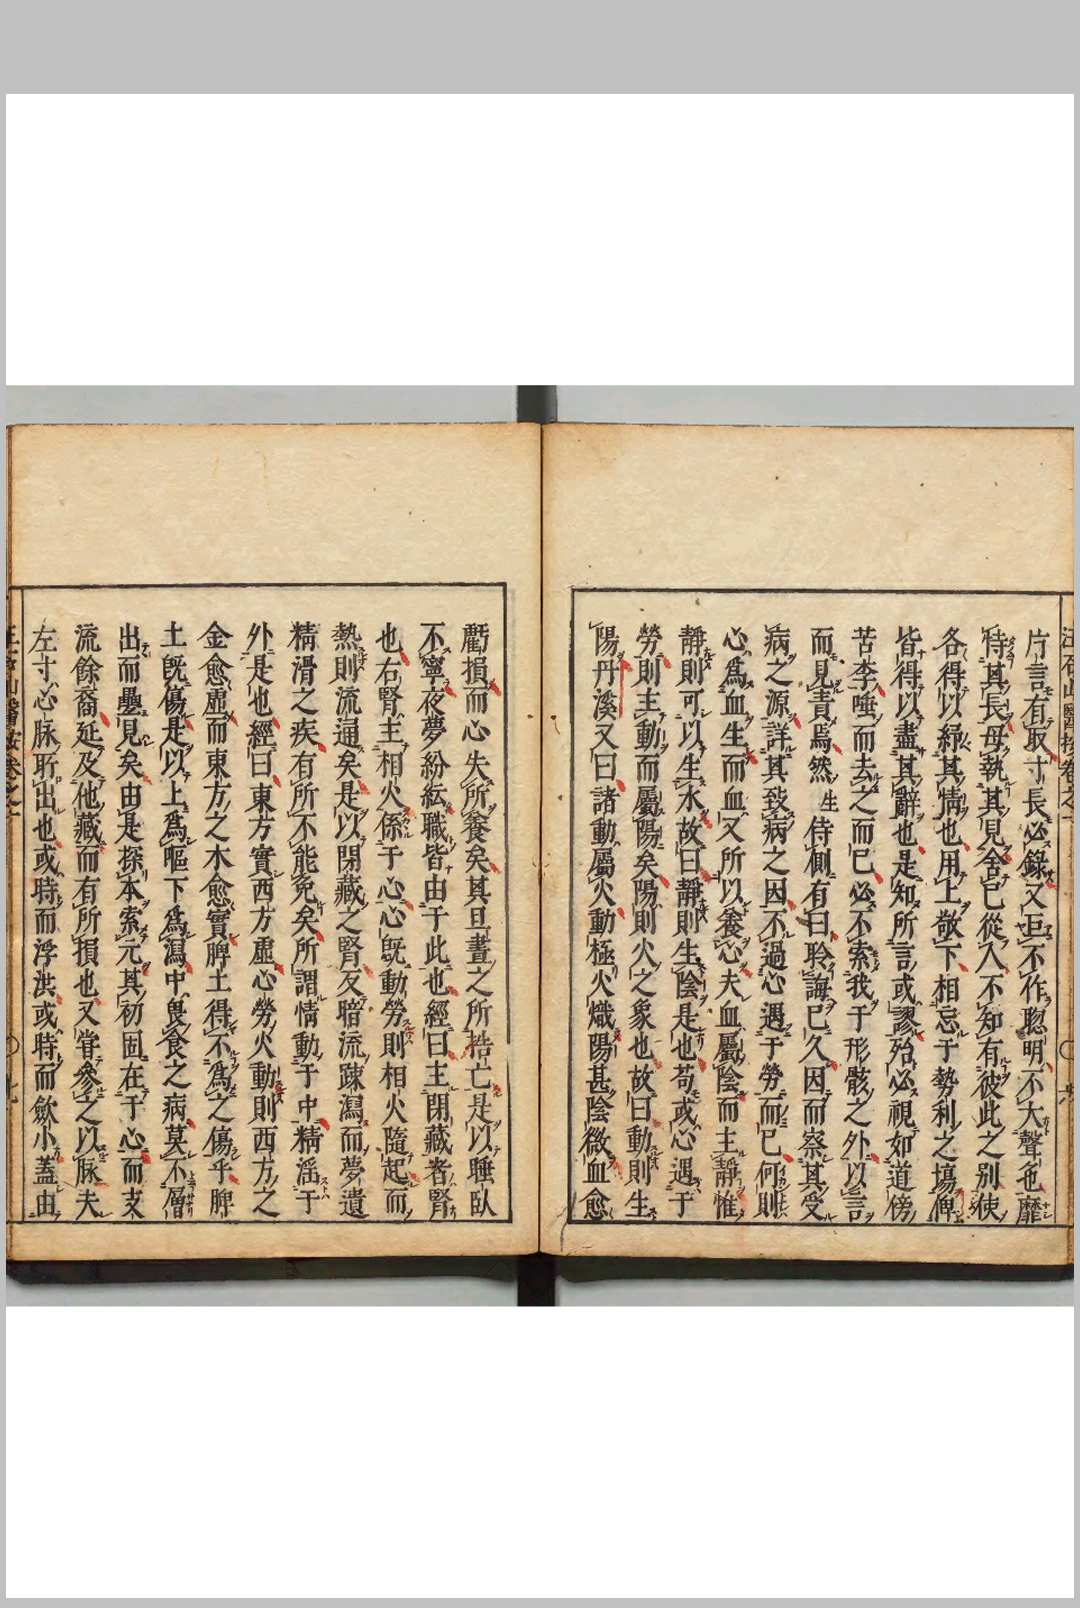 汪石山醫按卷之一
片言有取寸長必錄又叵不作聰明不大聲色靡
恃其長毋執其見舍己從人不知有彼此之別使
各得以紓其情也用上敬下相忘于勢利之塲俾
皆得以盡其辭也是知所言或謬殆必視如道傍
苦李唾而去之而已必不索我于形骸之外以言
而見責焉然生侍側有日聆誨已久因而察其受
病之源詳其致病之因不過心遇于勞而已何則
心爲血生而血又所以養心夫血屬陰而主靜惟
靜則可以生水故曰靜則生陰是也苟或心遇于
勞則主動而屬陽矣陽則火之象也故曰動則生
陽丹溪又曰諸動屬火動極火熾陽甚陰微血愈
虧損而心失所養矣其旦晝之所梏亡是以睡臥
不寧夜夢紛紜職皆由于此也經曰主閉藏者腎
也右腎主相火係于心心旣動勞則相火隨起而
熱則流通矣是以閉藏之腎反暗流疎瀉而夢遺
精滑之疾有所不能免矣所謂情動于中精滛于
外是也經曰東方實西方虛心勞火動則西方之
金愈虛而東方之木愈實脾土得不爲之傷乎脾
土旣傷是以上爲嘔下爲瀉中畏食之病莫不層
出而疊見矣由是探本索元其初固在于心而支
流餘裔延及他藏而有所損也又甞參之以脉夫
左寸心脉所出也或時而浮洪或時而歛小蓋由